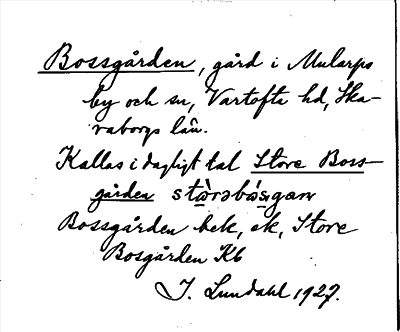 Bossgården, gård i Mularps
by och sn, Vartofta hd, Ska-
raborgs län.
Kallas i dagligt tal Store Boss-
gården
Bossgården hek, ek, Store
Bosgården Kb
J. Lundahl 1927.